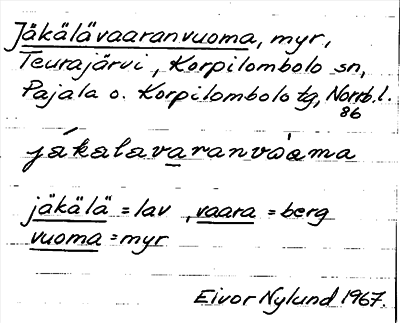 Jäkälävaaranvuoma, myr,
Teurajärvi, Korpilombolo sn,
Pajala o. Korpilombolo tg, Norrb.l.
86
jákalavaranvòama
jäkälä = lav, vaara = berg
vuoma = myr
Eivor Nylund 1967.